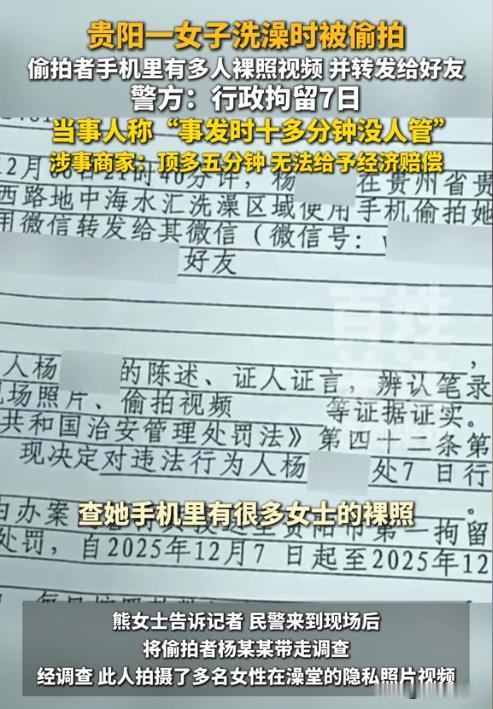 贵阳一女子洗澡时被偷拍
偷拍者手机里有多人裸照视频 并转发给好友
警方：行政拘留7日
当事人称“事发时十多分钟没人管”
涉事商家：顶多五分钟 无法给予经济赔偿
12月
40分钟，杨
在贵州省贵
西路地中海水汇洗澡区域使用手机偷拍她
用微信转发给其微信（微信号：
好友
人杨
的陈述、证人证言，辨认笔录
现场照片、偷拍视频
等证据证实。
共和国治安管理处罚法》第四十二条第
现决定对违法行为人杨
处7日行
由办案
至贵阳市第一拘留
查她手机里有很多女士的裸照
处罚，自2025年12月7日起至2025年12
百姓
熊女士告诉记者 民警来到现场后
将偷拍者杨某某带走调查
经调查 此人拍摄了多名女性在澡堂的隐私照片视频